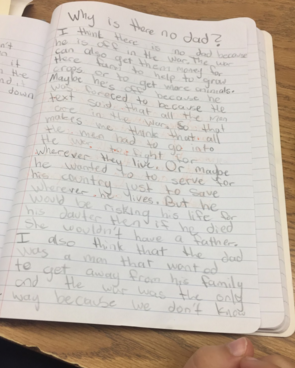 Why is there no dad?
I think there is no dad because
he is off in the war. The war
can also get them money for
there farm to help to grow
crops or to get more animals.
Maybe he's off because he
was forced to because the
text said that all the men
are in the war. So that
makes me think that all
the men had to go into
the war to fight for
wherever they live. Or maybe
he wanted to to serve for
his country just to save
wherever he lives. But he
would be risking his life or
his then if he died
she wouldn't have a father.
I also think that the dad
was a man that wanted
to get away from his family
and the war was the only
way because we don't know
n't
it
the
down